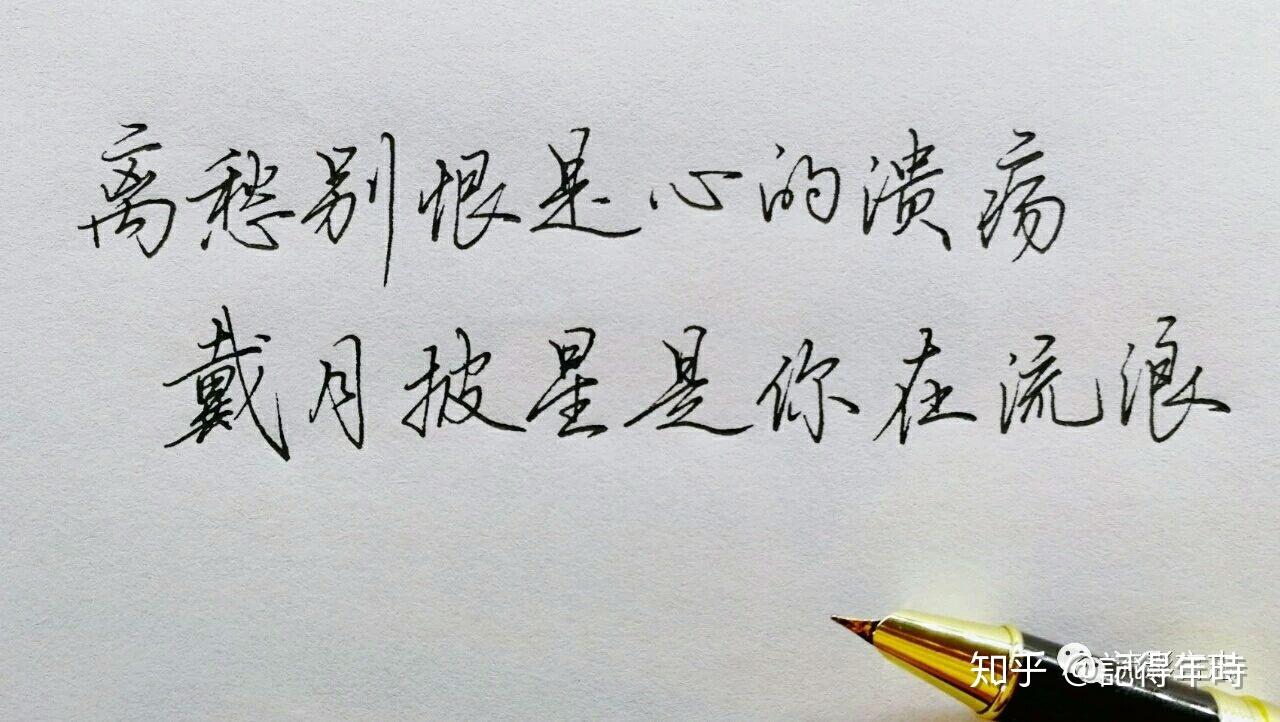 离愁别恨是心的溃疡
戴月披星是你在流浪
知乎 @記得年時